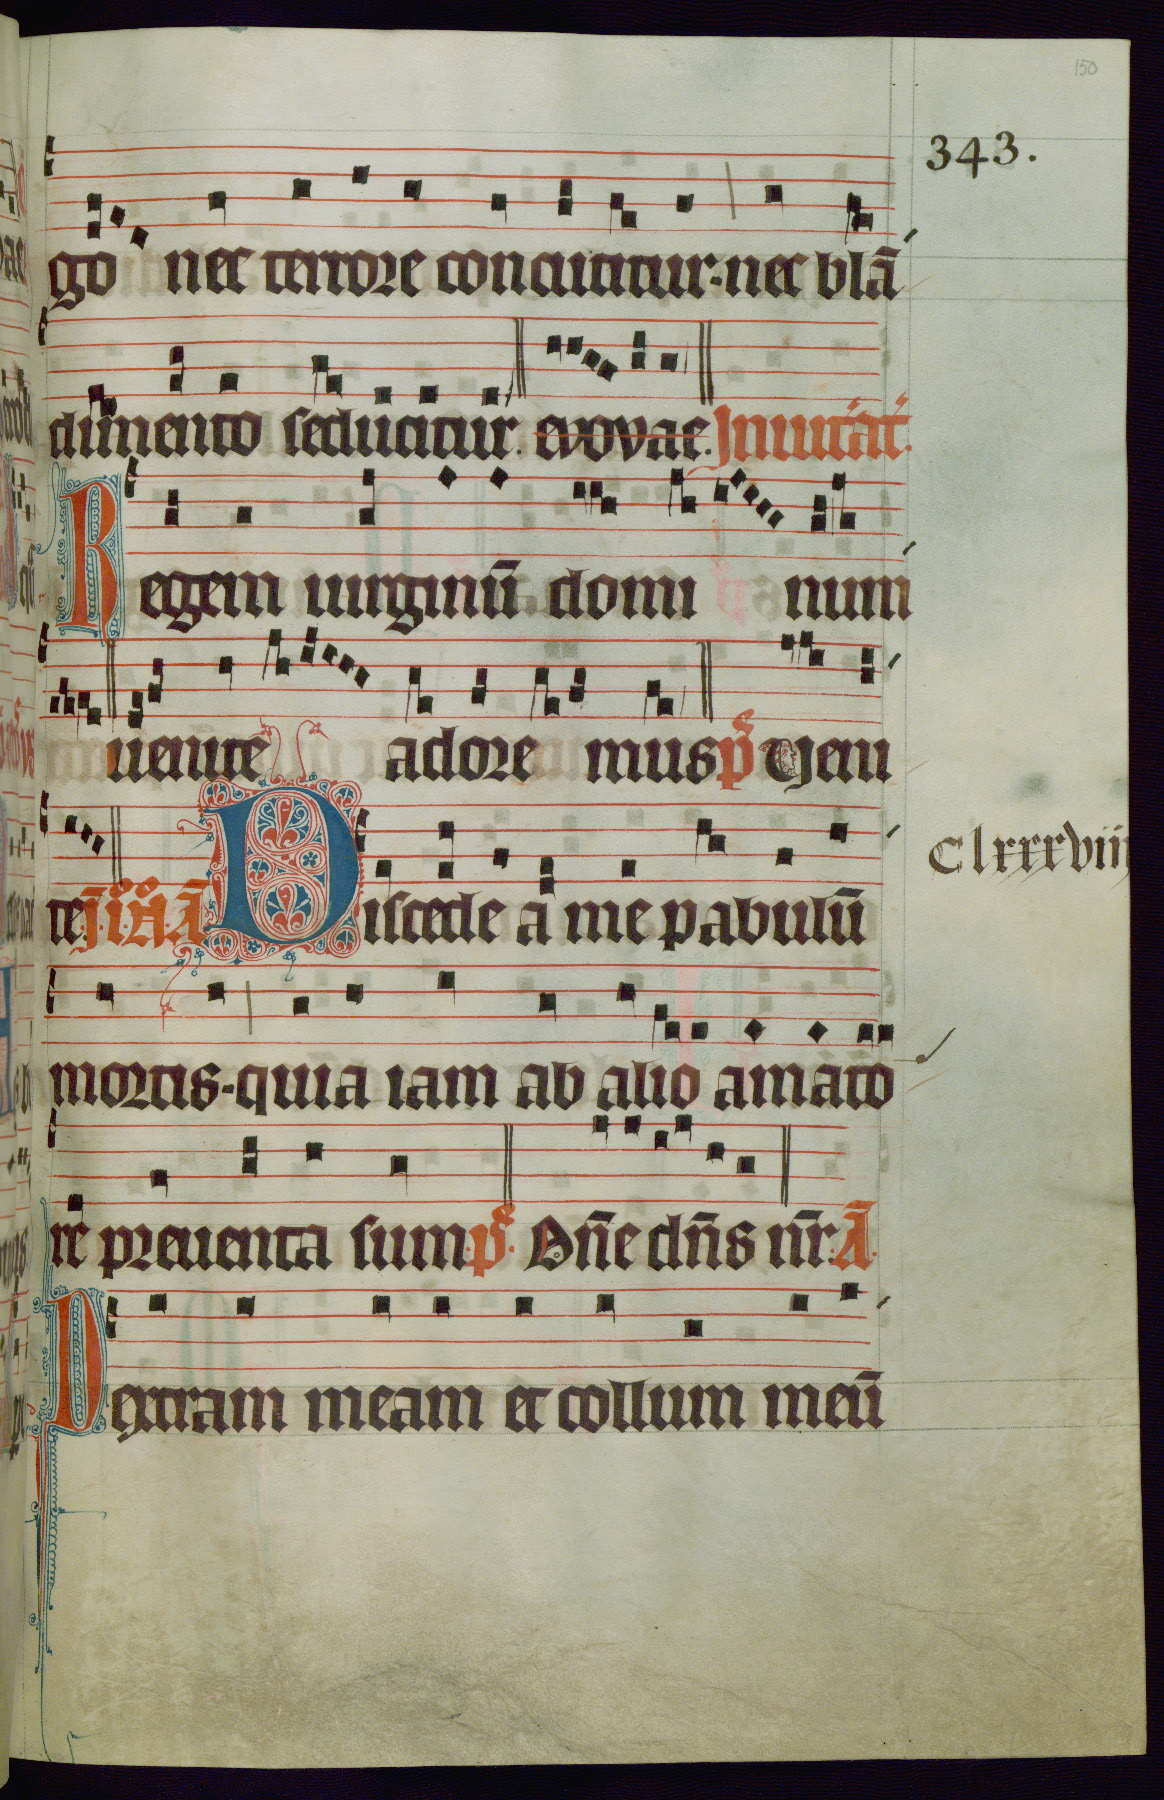 150
343.
go nec terrore concutitur·nec blā
dimento seducitur. evovae. Jnuitat̄.
Regem uirginū domi num
uenite adore mus p̄s Veni
te J. i°. Nō. Ā Discede a me pabulū
Clxxxviii
mortis·quia iam ab alio amato
re preuenta sum. p̄s. Dn̄e dn̄s nr̄. Ā.
Dextram meam et collum meū